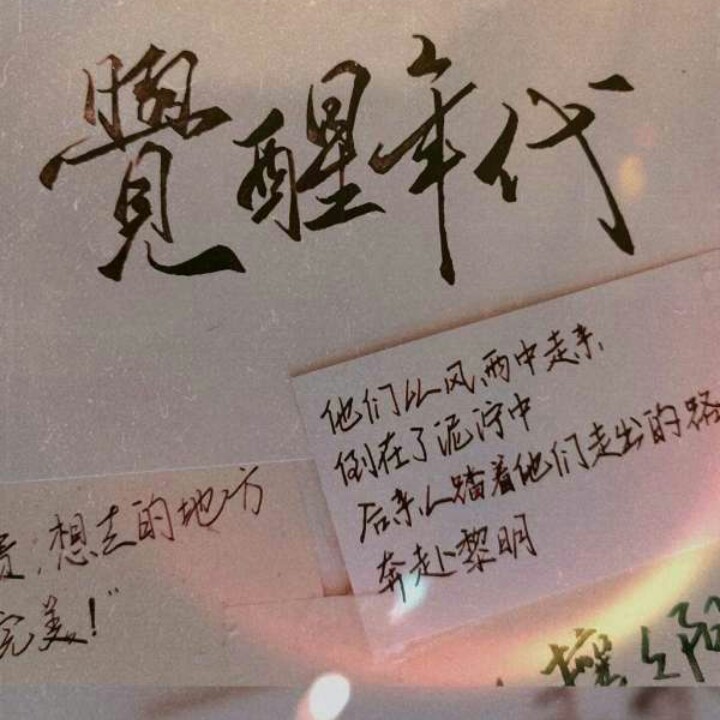 覺醒年代
他们从风雨中走来
倒在了泥泞中
后来人踏着他们走出的路
奔赴黎明
想去的地方
完美！”